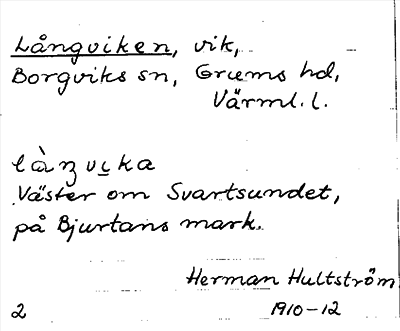 Långviken, vik,
Borgviks sn, Grums hd,
Värml. l.
Väster om Svartsundet,
på Bjurtans mark.
Herman Hultström
2 1910-12